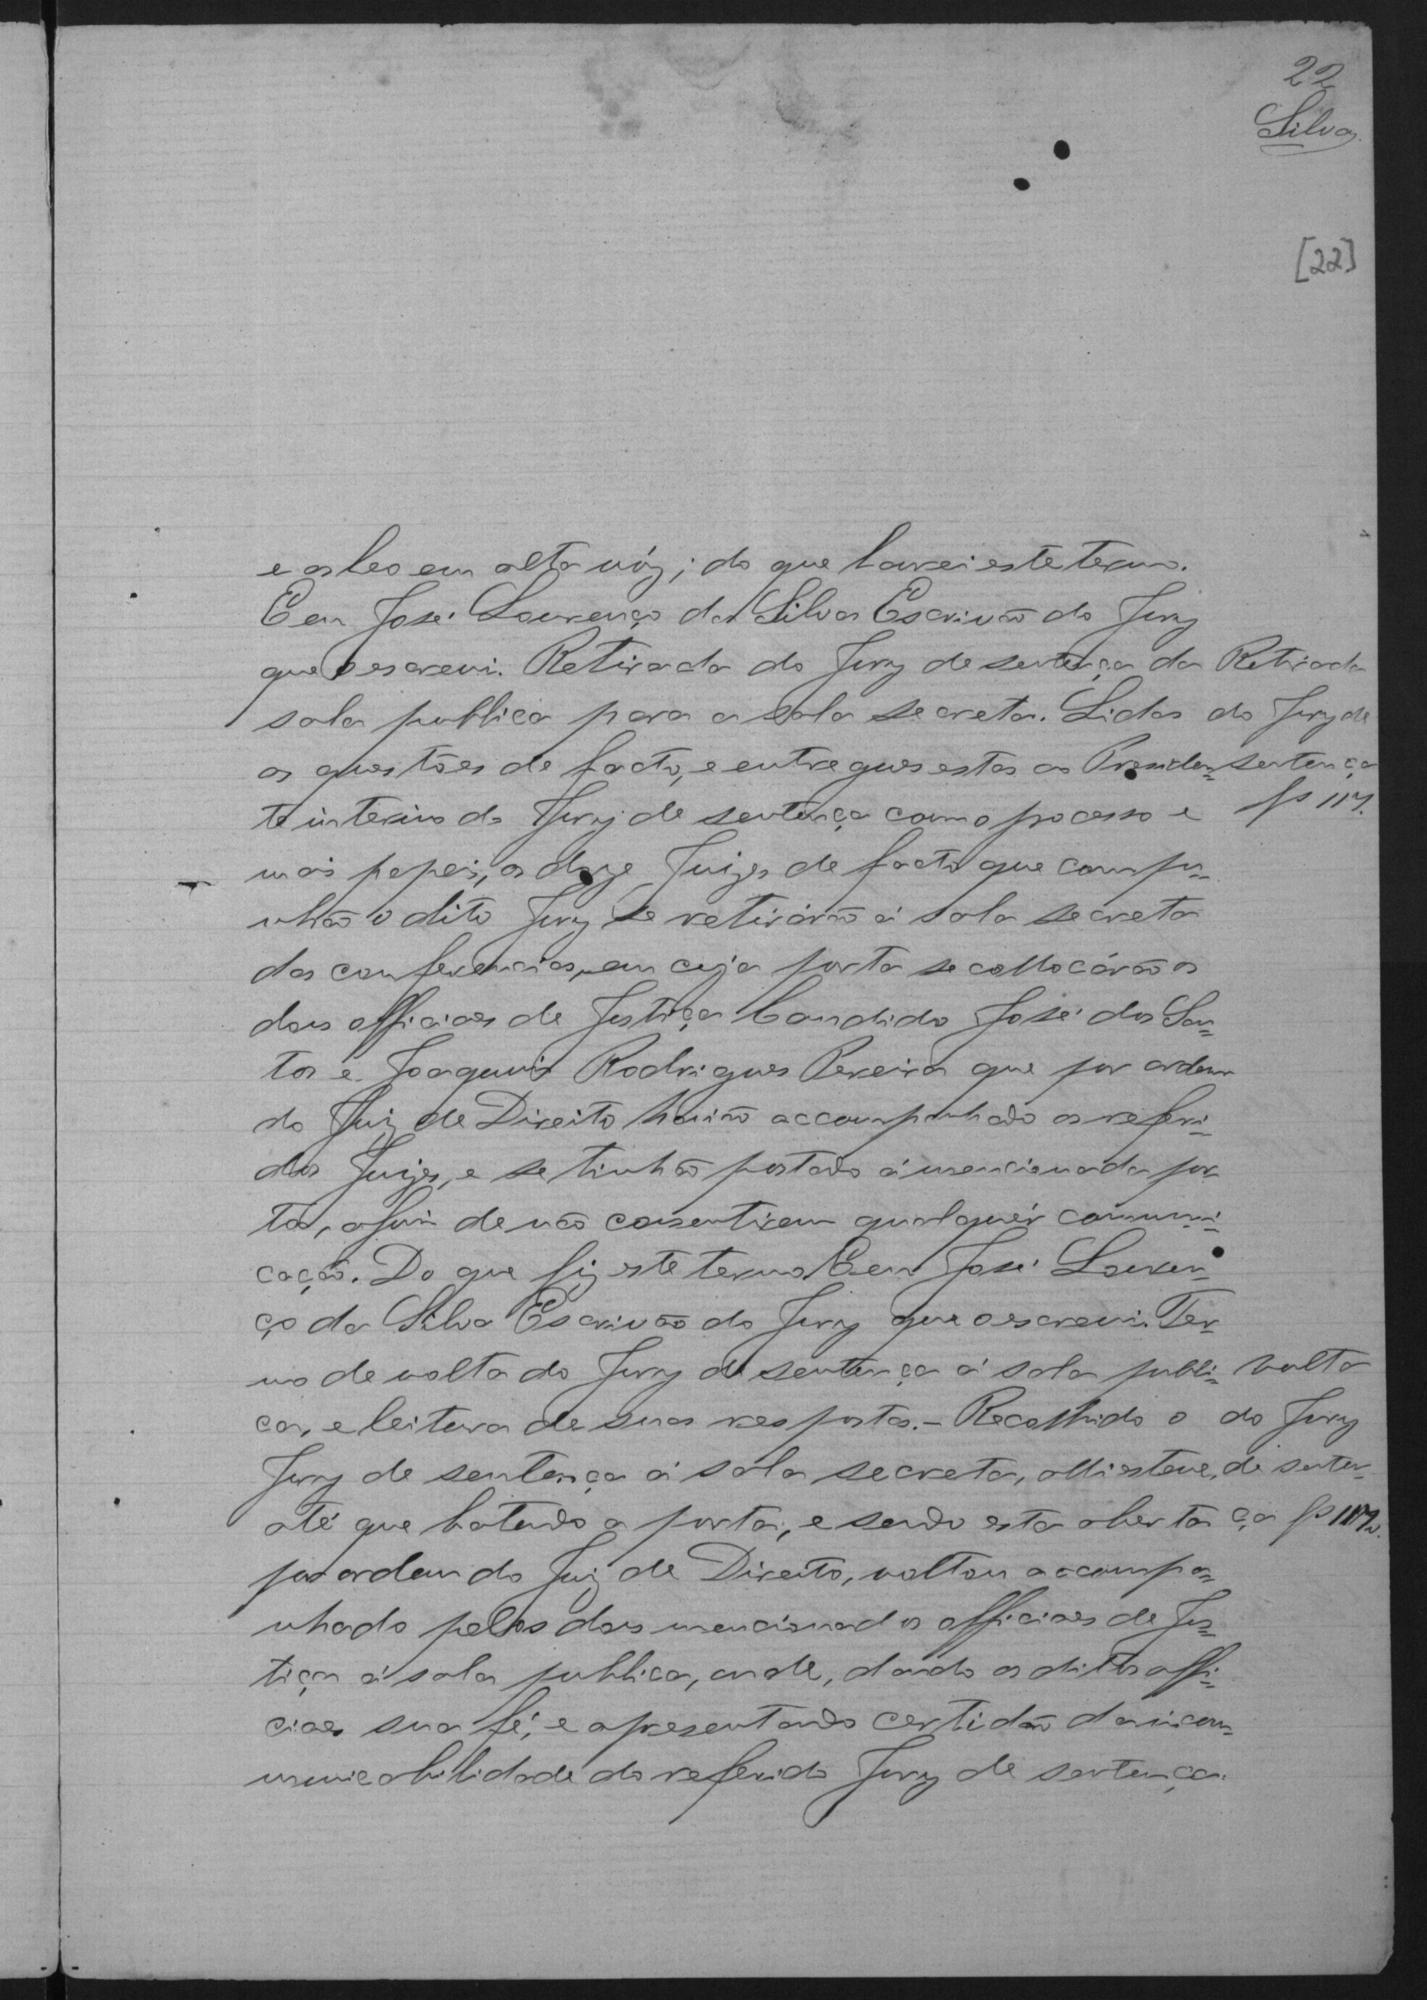 22
Silva
[22]
e as leo em alta vóz; do que lavrei este termo.
E eu José Lourenço da Silva Escrivão do Jury
que o escrevi. Retirada do Jury de sentença da
sala publica para a sala secreta. Lidas
as questões de facto, e entregues estas ao Presiden=
te interino do Jury de sentença com o processo e
mais papeis, os doze Juizes de facto que compu=
nhão o dito Jury se retirárão á sala secreta
das conferencias, em cuja porta se collocárão os
dous officiaes de Justiça Candido José dos San=
tos e Joaquim Rodrigues Pereira que por ordem
do Juiz de Direito havião accompanhado os referi=
dos Juizes, e se tinhão postado á mencionada por
ta, afim de não consentirem qualquér communi=
cação. Do que fiz este termo E eu José Louren=
ço da Silva Escrivão do Jury que o escrevi. Ter=
mo de volta do Jury de sentença á sala publi=
ca, e leitura de suas respostas. - Recolhido o
Jury de sentença á sala secreta, alli esteve,
até que batendo a porta, e sendo esta aberta
por ordem do Juiz de Direito, voltou accompa=
nhado pelos dous mencionados officiaes de Jus=
tiça á sala publica, onde, dando os ditos offi=
ciaes sua fé, e apresentando certidão da incom=
municabilidade do referido Jury de sentença.
Retirada
do Jury de
sentença
fs 117.
volta
do Jury
de senten=
ça fs 117v.